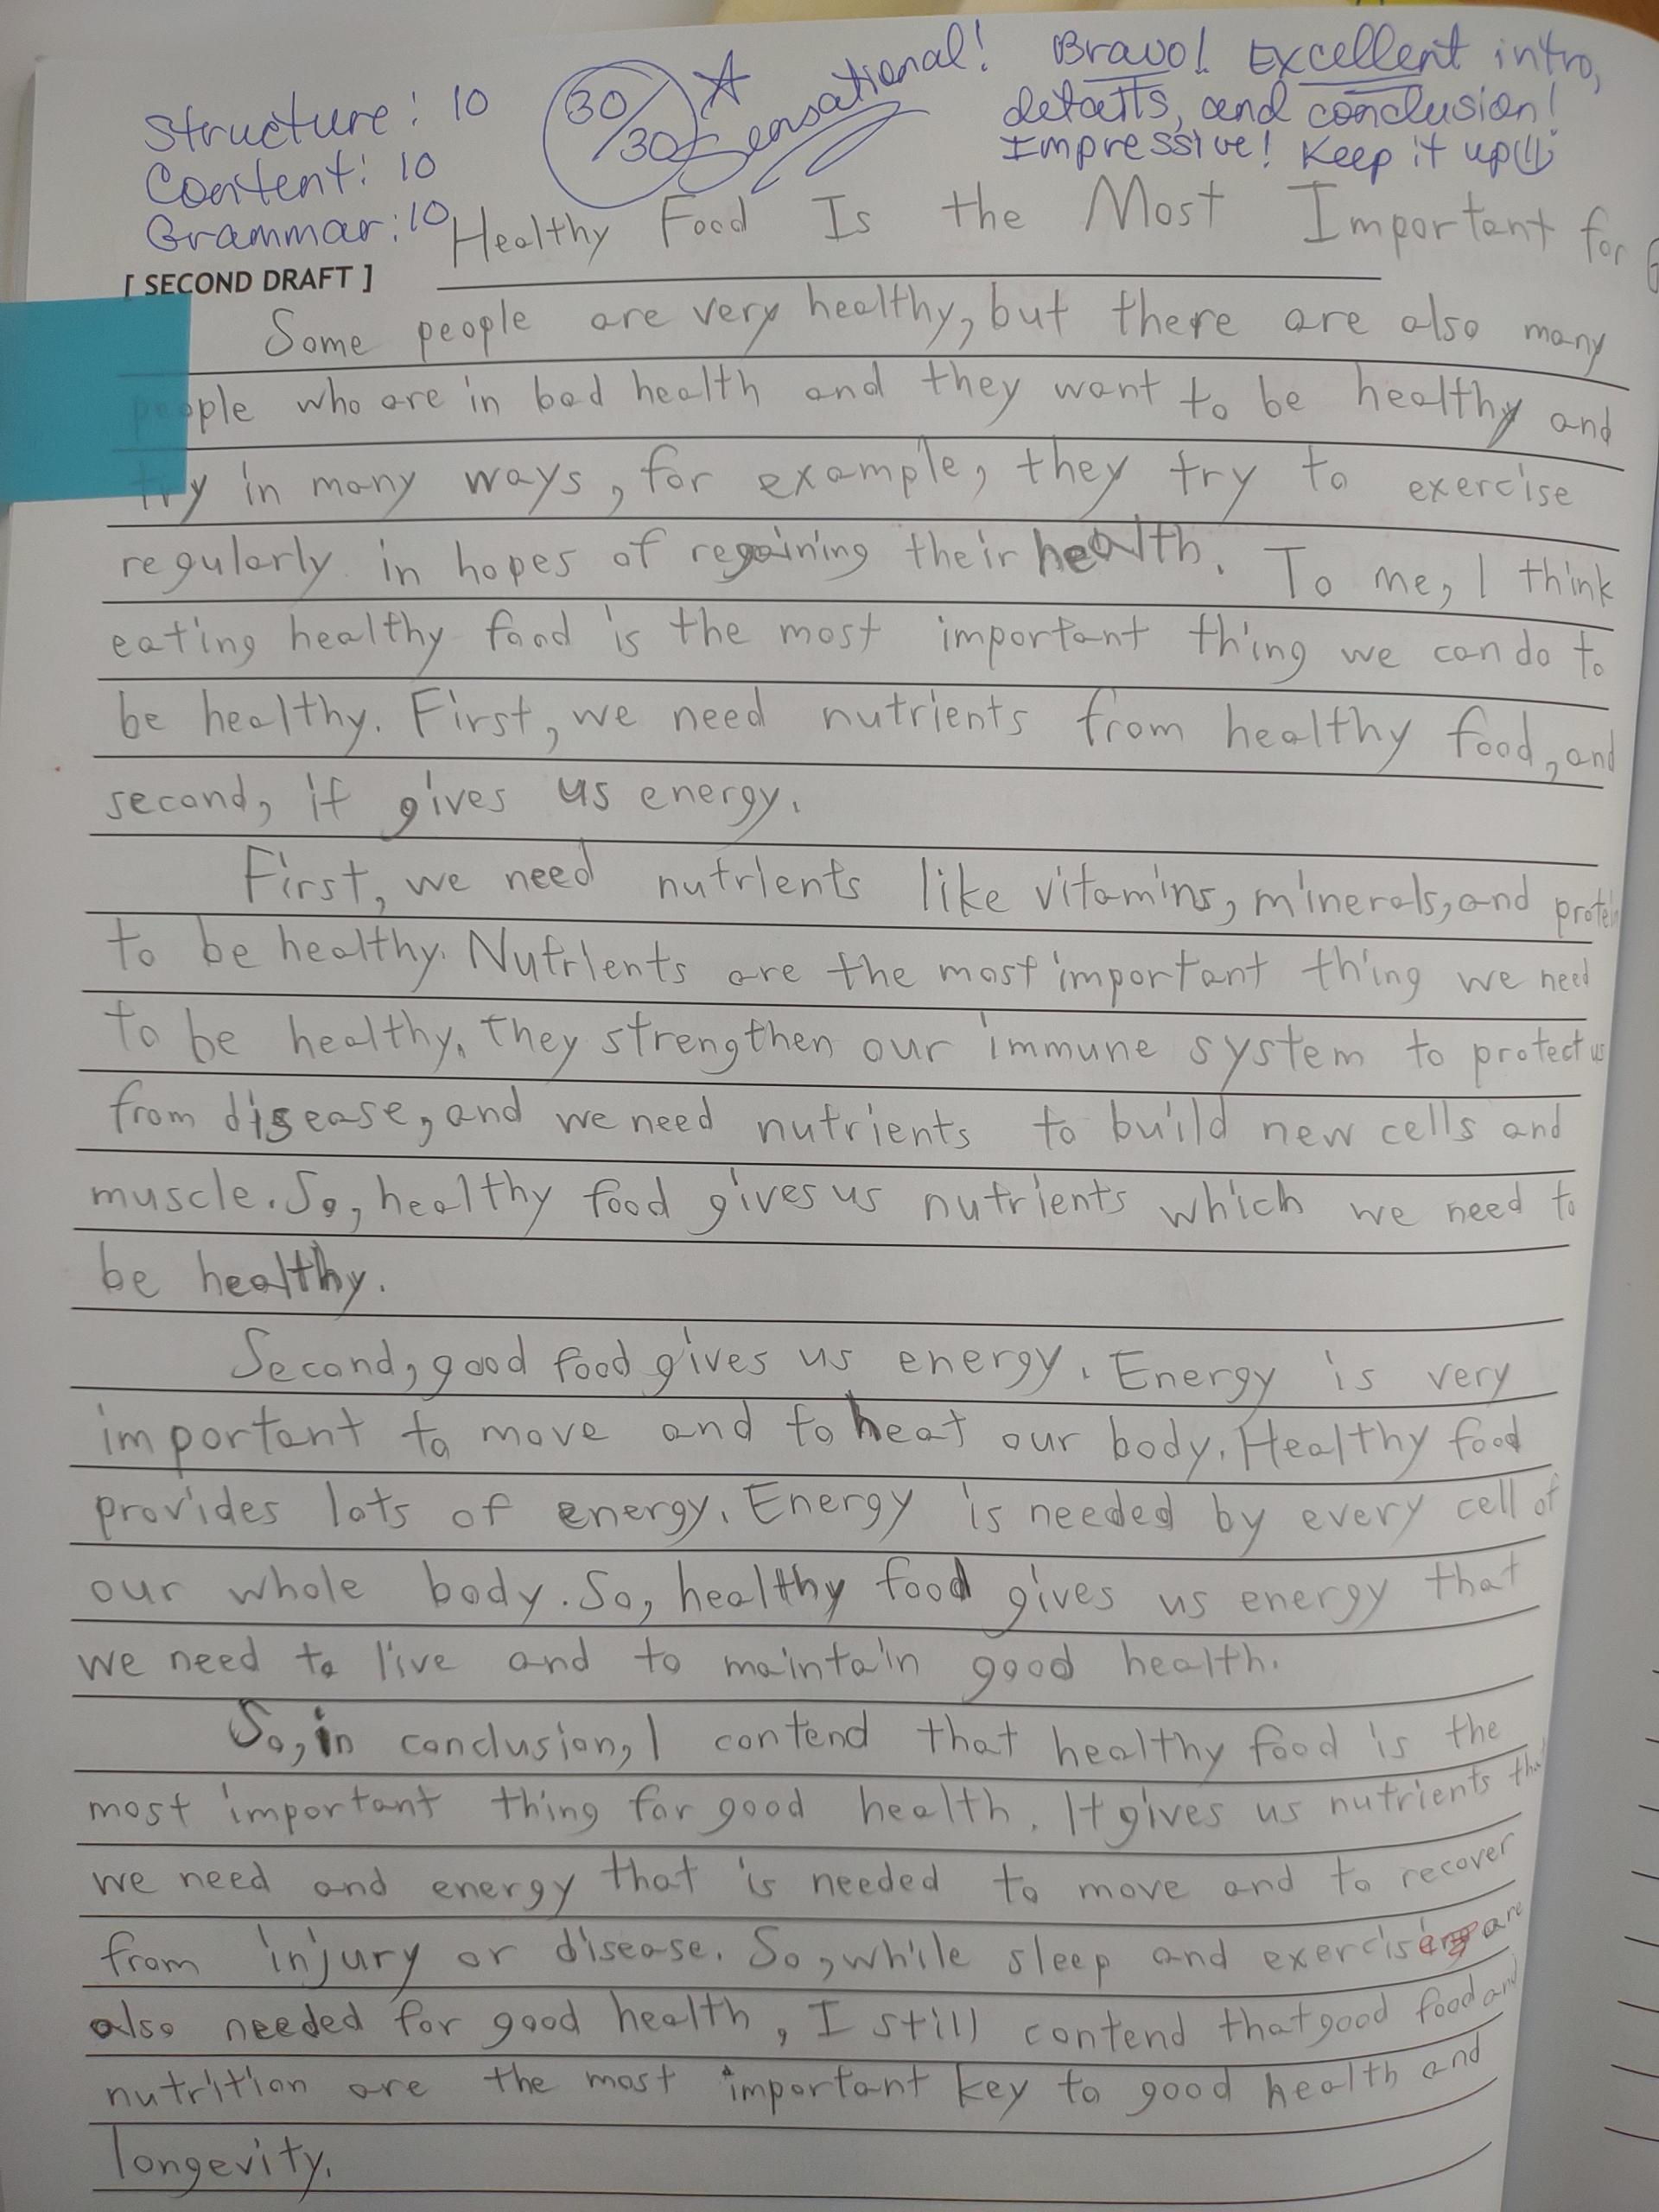 Structure: 10
Content: 10
Grammar: 10
30/30
Sensational!
Bravo! Excellent intro,
details, and conclusion!
Impressive! Keep it up
Healthy Food Is the Most Important for
[ SECOND DRAFT ]
Some people are very healthy, but there are also many
people who are in bad health and they want to be healthy and
try in many ways, for example, they try to exercise
regularly in hopes of regaining their health. To me, I think
eating healthy food is the most important thing we can do to
be healthy. First, we need nutrients from healthy food, and
second, it gives us energy.
First, we need nutrients like vitamins, minerals, and protein
to be healthy. Nutrients are the most important thing we need
to be healthy. They strengthen our immune system to protect us
from disease, and we need nutrients to build new cells and
muscle. So, healthy food gives us nutrients which we need to
be healthy.
Second, good food gives us energy. Energy is very
important to move and to heat our body. Healthy food
provides lots of energy. Energy is needed by every cell of
our whole body. So, healthy food gives us energy that
we need to live and to maintain good health.
So, in conclusion, I contend that healthy food is the
most important thing for good health. It gives us nutrients that
we need and energy that is needed to move and to recover
from injury or disease. So, while sleep and exercise are
also needed for good health, I still contend that good food and
nutrition are the most important key to good health and
longevity.